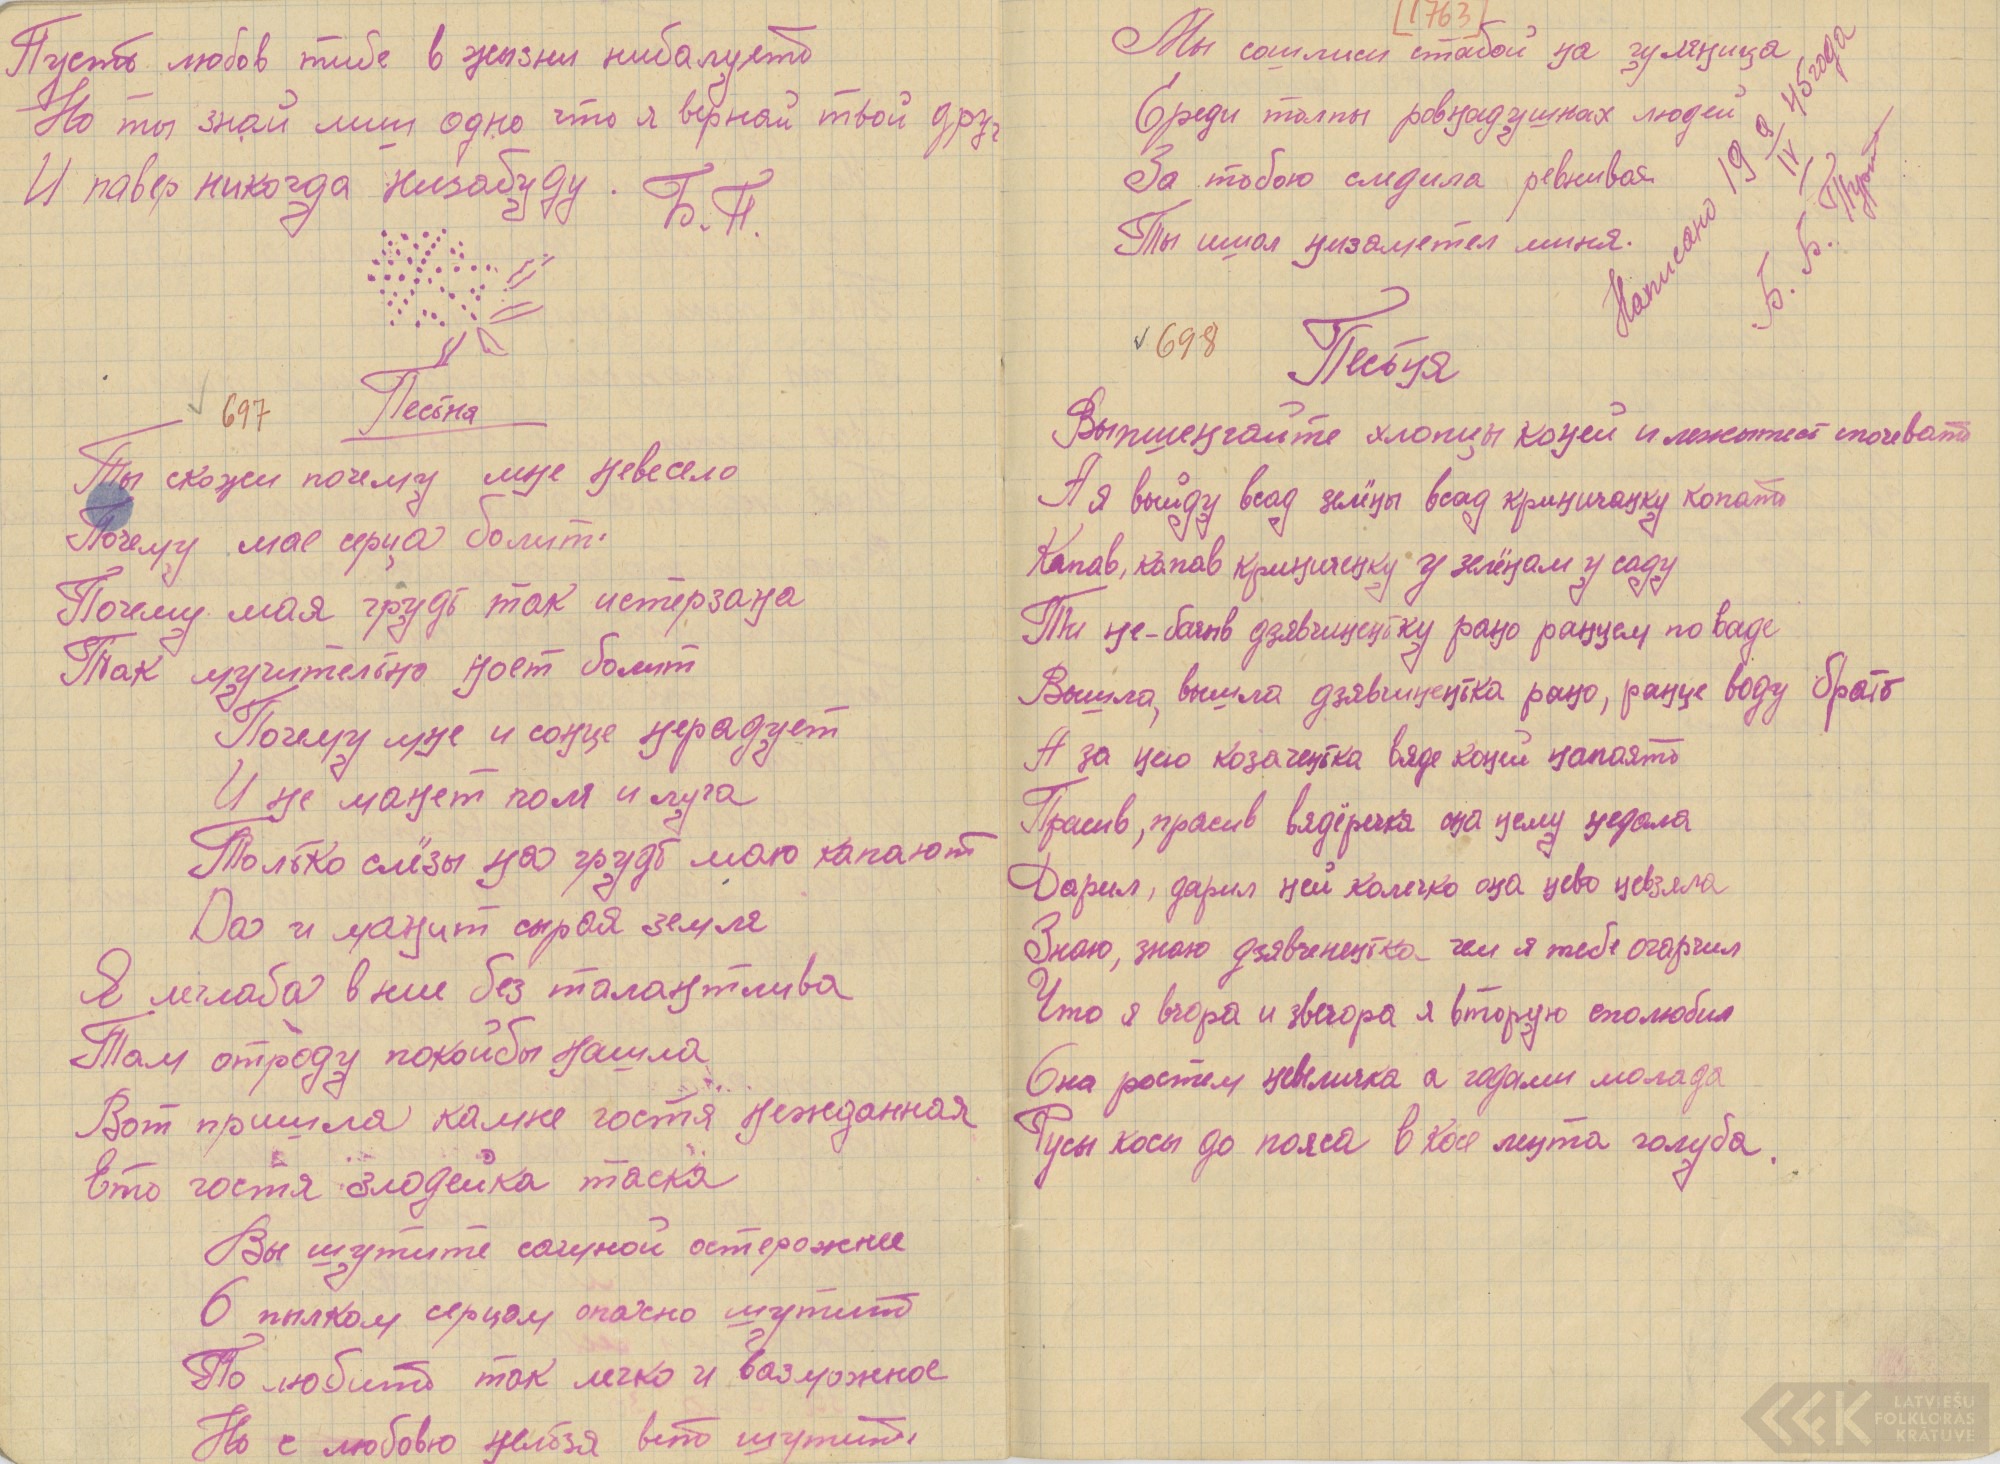 Пусть любов тибе в жызни нибалуеть
Но ты знай лиш одно что я вернай твой друг
И павер никогда низабуду. Б.П.
697 Песьня
Ты скожи почему мне невесело
Почему мае серца болит.
Почему мая грудь так истерзана
Так мучительно ноет болит
Почему мне и сонце нерадует
И не манет поля и луга
Только слёзы на грудь маю капают
Да и манит сырая земля
Я леглаба в ние без талантлива
Там отроду покойбы нашла
Вот пришла камне гостя нежданная
Ето гостя злодейка таска
Вы шутите сомной остерожние
С пылком серцом опасно шутить
То любить так легко и вазможное
Но с любовю нельзя веть шутить.
[1763]
Мы сошлиси стабой на гуляница
Среди толпы ровнадушнах людей
За тобою следила ревнивая
Ты ишол низаметел миня.
Написано 19 9/IV 45 года
Б. Б. Турт
698 Песьня
Выпшенгайте хлопцы коней и лежытест почевать
А я выйду всад зелёны всад криничанку копать
Капав, капав криниченку у зелёнам у саду
Ти не-бачыв дзявчиненьку рано ранцем по ваде
Вышла, вышла дзявчиненька рано, ранце воду брать
А за нею козаченька вяде коней напаять
Прасив, прасив вядёречка она нему недала
Дарил, дарил ней колечко она нево невзяла
Знаю, знаю дзявчененька чем я тебе огарчил
Что я вчора и звечора я вторую сполюбил
Она ростем невеличка а годами молада
Русы косы до пояса в косе лента голуба.
LATVIEŠU
FOLKLORAS
KRĀTUVE